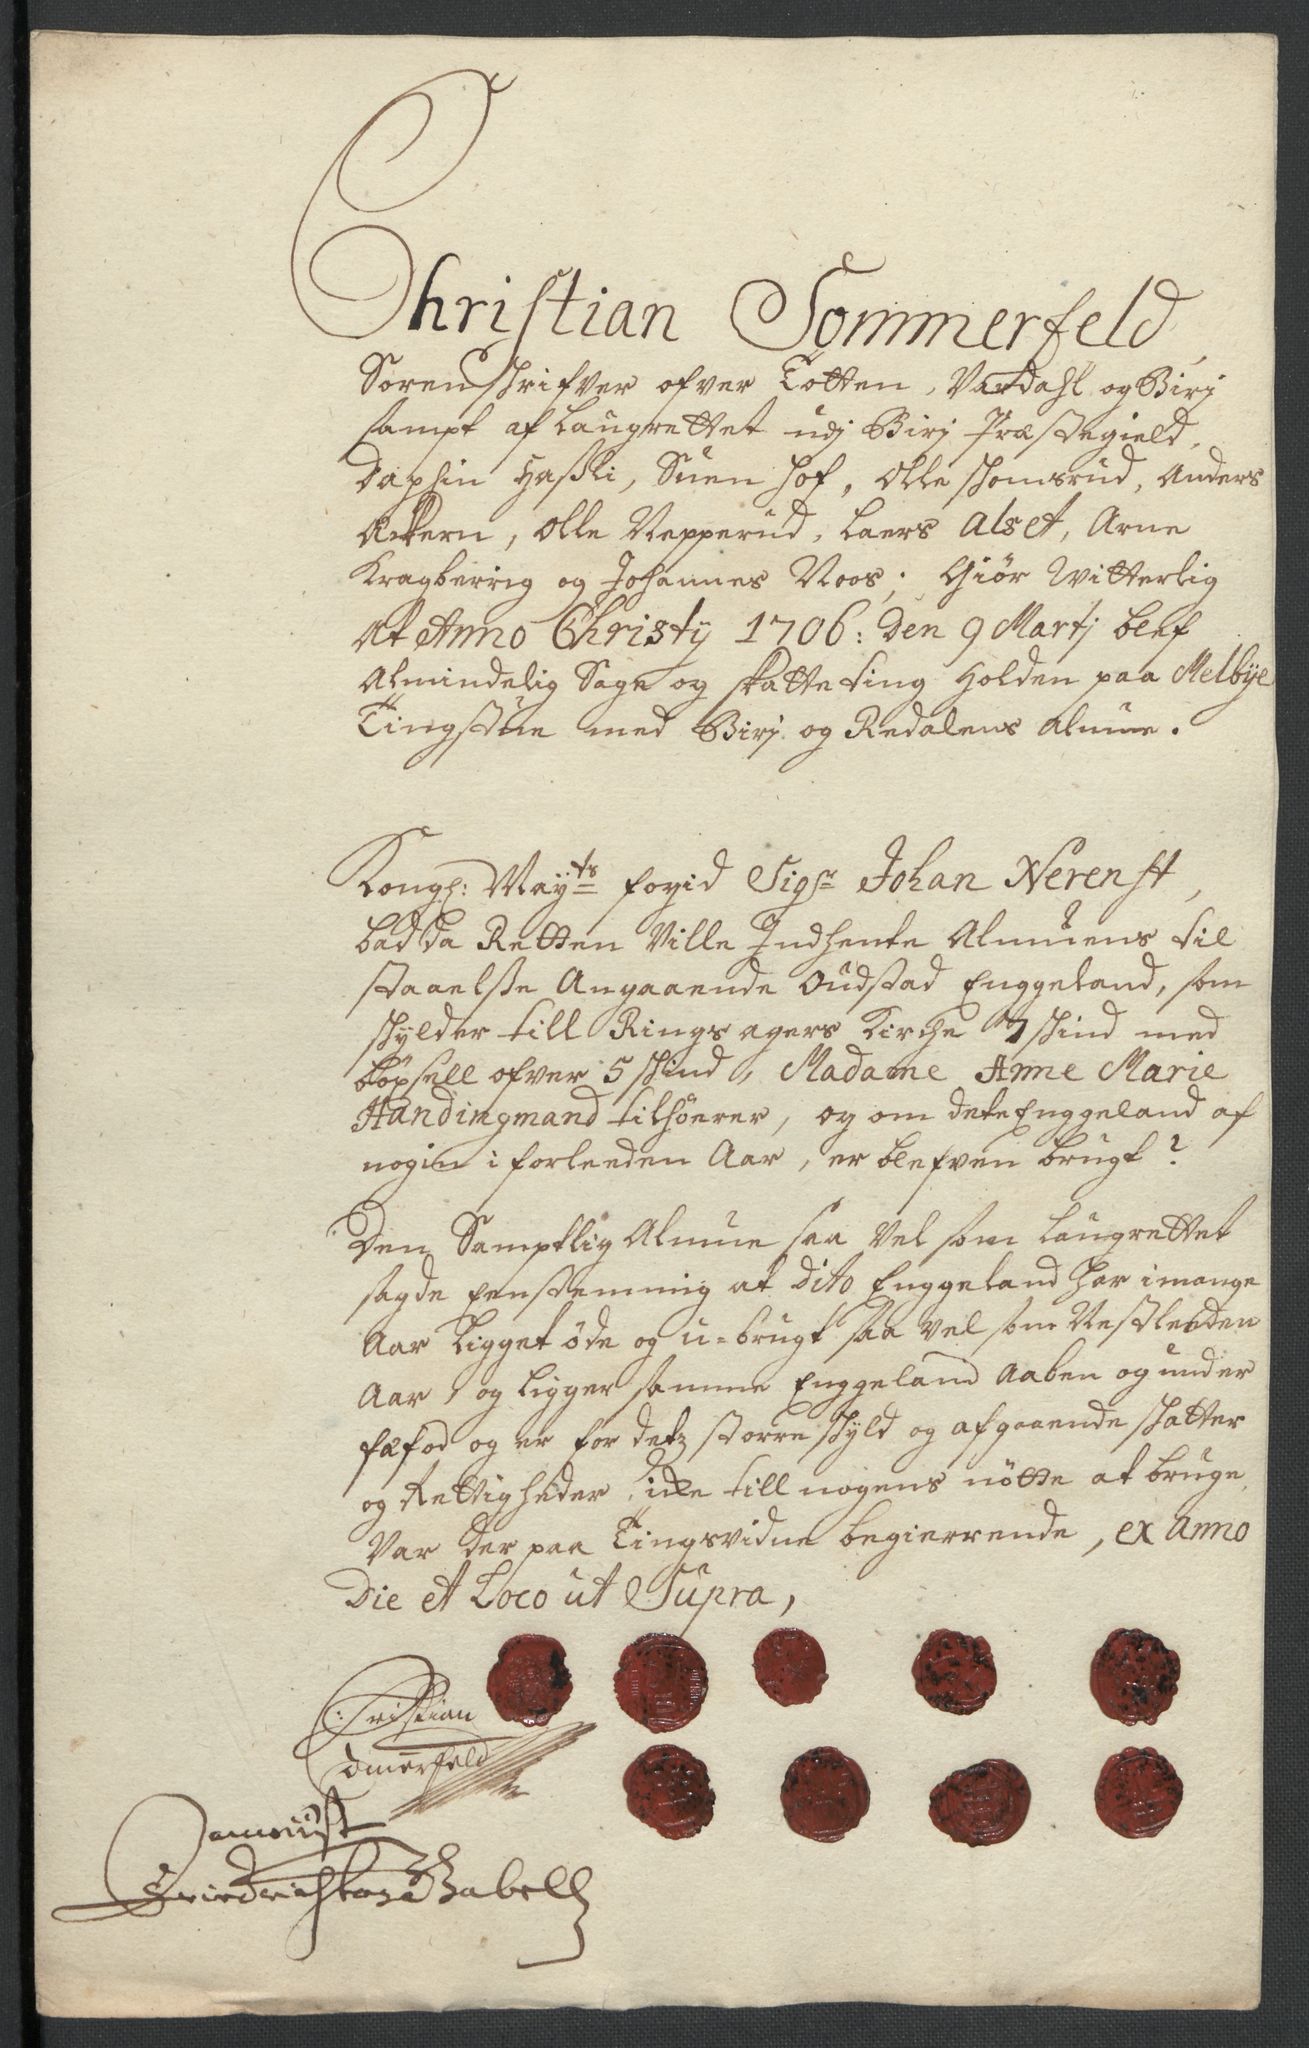 Christian Sommerfeld,
Sorenschrifver ofver Totten, Vardahl og Birj
sampt af Laugrettet udj Birj Præstegield,
Daphin Haßli, Suen Hof, Olle Skomsrud, Anders
Ackern, Olle Nepperud, Laers Alset, Arne
Kragberrig og Johannes Noos; Giör Witterlig
At Anno Christy 1706: den 9 Martj blef
Almindelig Sage og skatte ting Holden paa Melbÿe
Tingstue med Birj og Redalens almue.
Kongl: Maÿts fogid Sigr Johan Nerenst,
bad da Retten Ville Indhente Almuens til
staaelse Angaaende Oudstad Enggeland, som
skylder till Ringsagers Kirche 7 skind med
böxsell ofver 5 skind, Madame Anne Marie
Handingmand tilhöerer, og om dete Enggeland af
nogin i forleeden Aar, er blefven brugt?
Den Samptlig Almue saa Vel som Laugrettet
sagde Eenstemmig at dito Enggeland har i mange
Aar Ligget öde og u-brugt saa vel som Nestleeden
Aar, og Ligger samme Enggeland Aaben og under
fæfod og er for detz storre skyld og afgaaende skatter
og Rettigheder icke till nogens nötte at bruge,
Var der paa Tingsvidne begierrende, ex Anno
Die et Loco ut Supra,
Cristian
Somerfeld